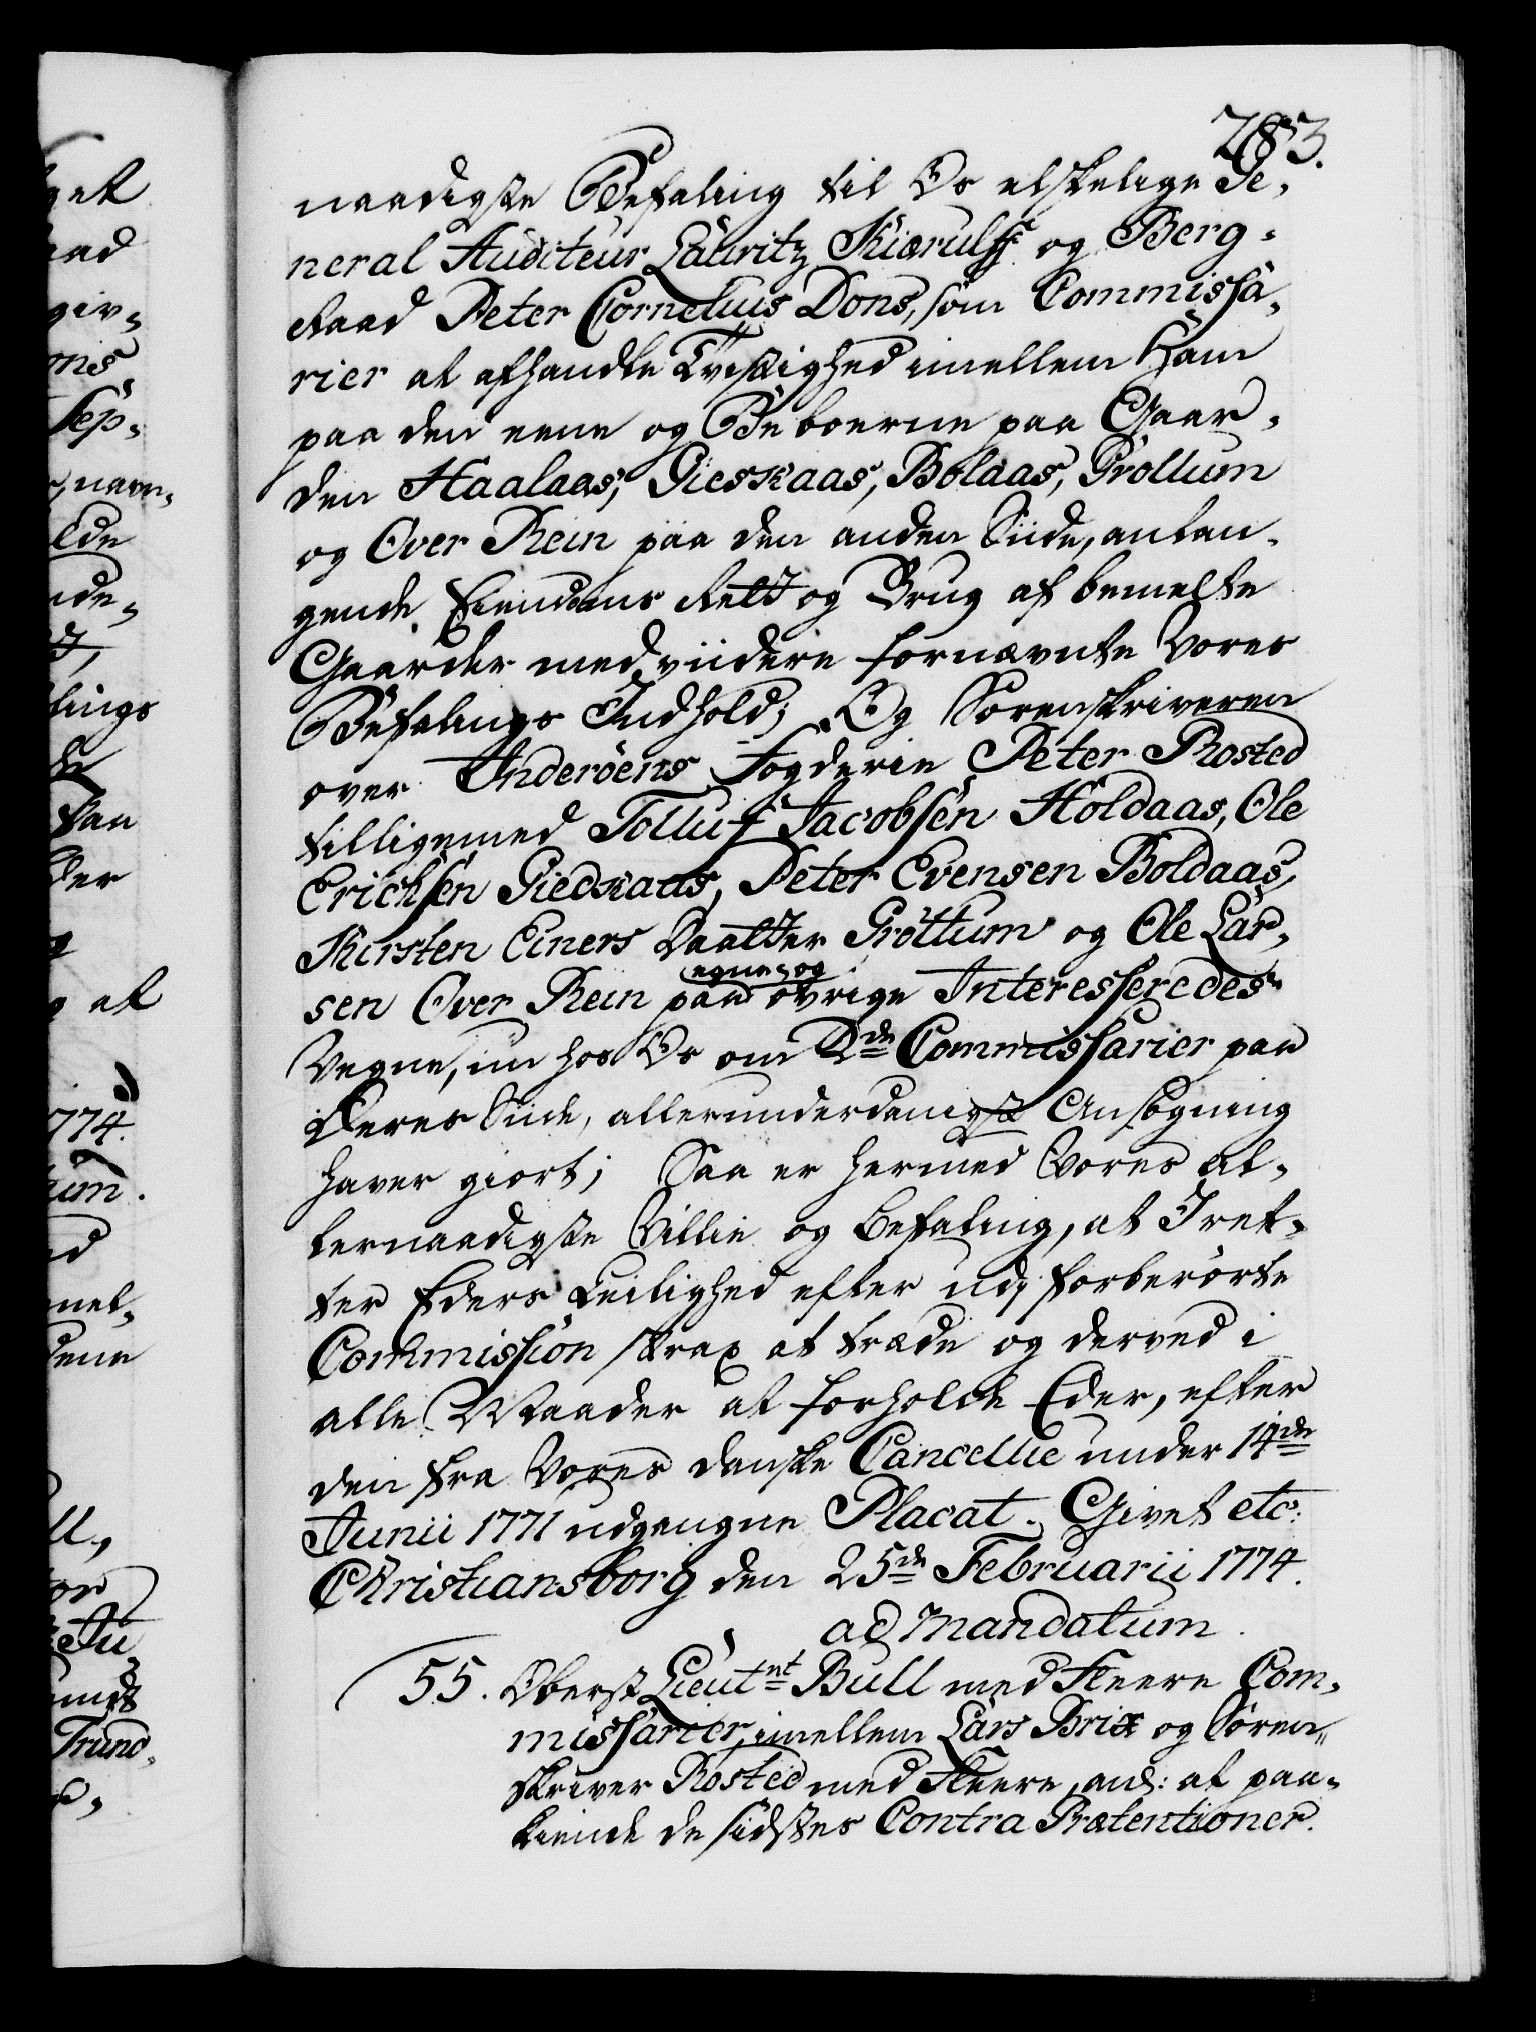 283.
naadigste Befaling til Os elskelige Ge,
neral Auditeur Lauritz Kiærulff og Berg-
Raad Peter Cornelius Dons, som Commissa,
rier at afhandle Tvistighed imellem Ham
paa den eene og Beboerne paa Gaar,
den Haalaas, Gieskaas, Bolaas, Gröllum
og Over Rein paa den anden Siide, anlan-
gende Eiendoms Rett og Brug af bemelte
Gaarder med viidere fornævnte Vores
Befalings Indhold; Og Sorenskriveren
over Inderöens Fogderie Peter Rosted
tilligemed Tolluf Jacobsen Holdaas, Ole
Erichsen Giedskaas, Peter Evensen Boldaas,
Kirsten Einers Daatter Gröttum og Ole Lar,
sen Over Rein paa egne og övrige Interesseredes
Vegne, nu hos Os om 2de Commissarier paa
Deres Siide, allerunderdanigst Ansögning
haver giort; Saa er hermed Vores al,
lernaadigste Villie og Befaling, at I ret-
ter Eders Leilighed efter udj forberörte
Commission strax at træde og derved i
alle Maader at forholde Eder, efter
den fra Vores danske Cancellie under 14de
Junii 1771 udgangne Placat. Givet etc:
Christiansborg den 25de Februarii 1774.
ad mandatum.
55. Oberst Lieutnt Bull med Fleere Com,
missarier, imellem Lars Brix og Soren,
skriver Rosted med Fleere, anl: at paa-
kiende de sidstes Contra Prætentioner.